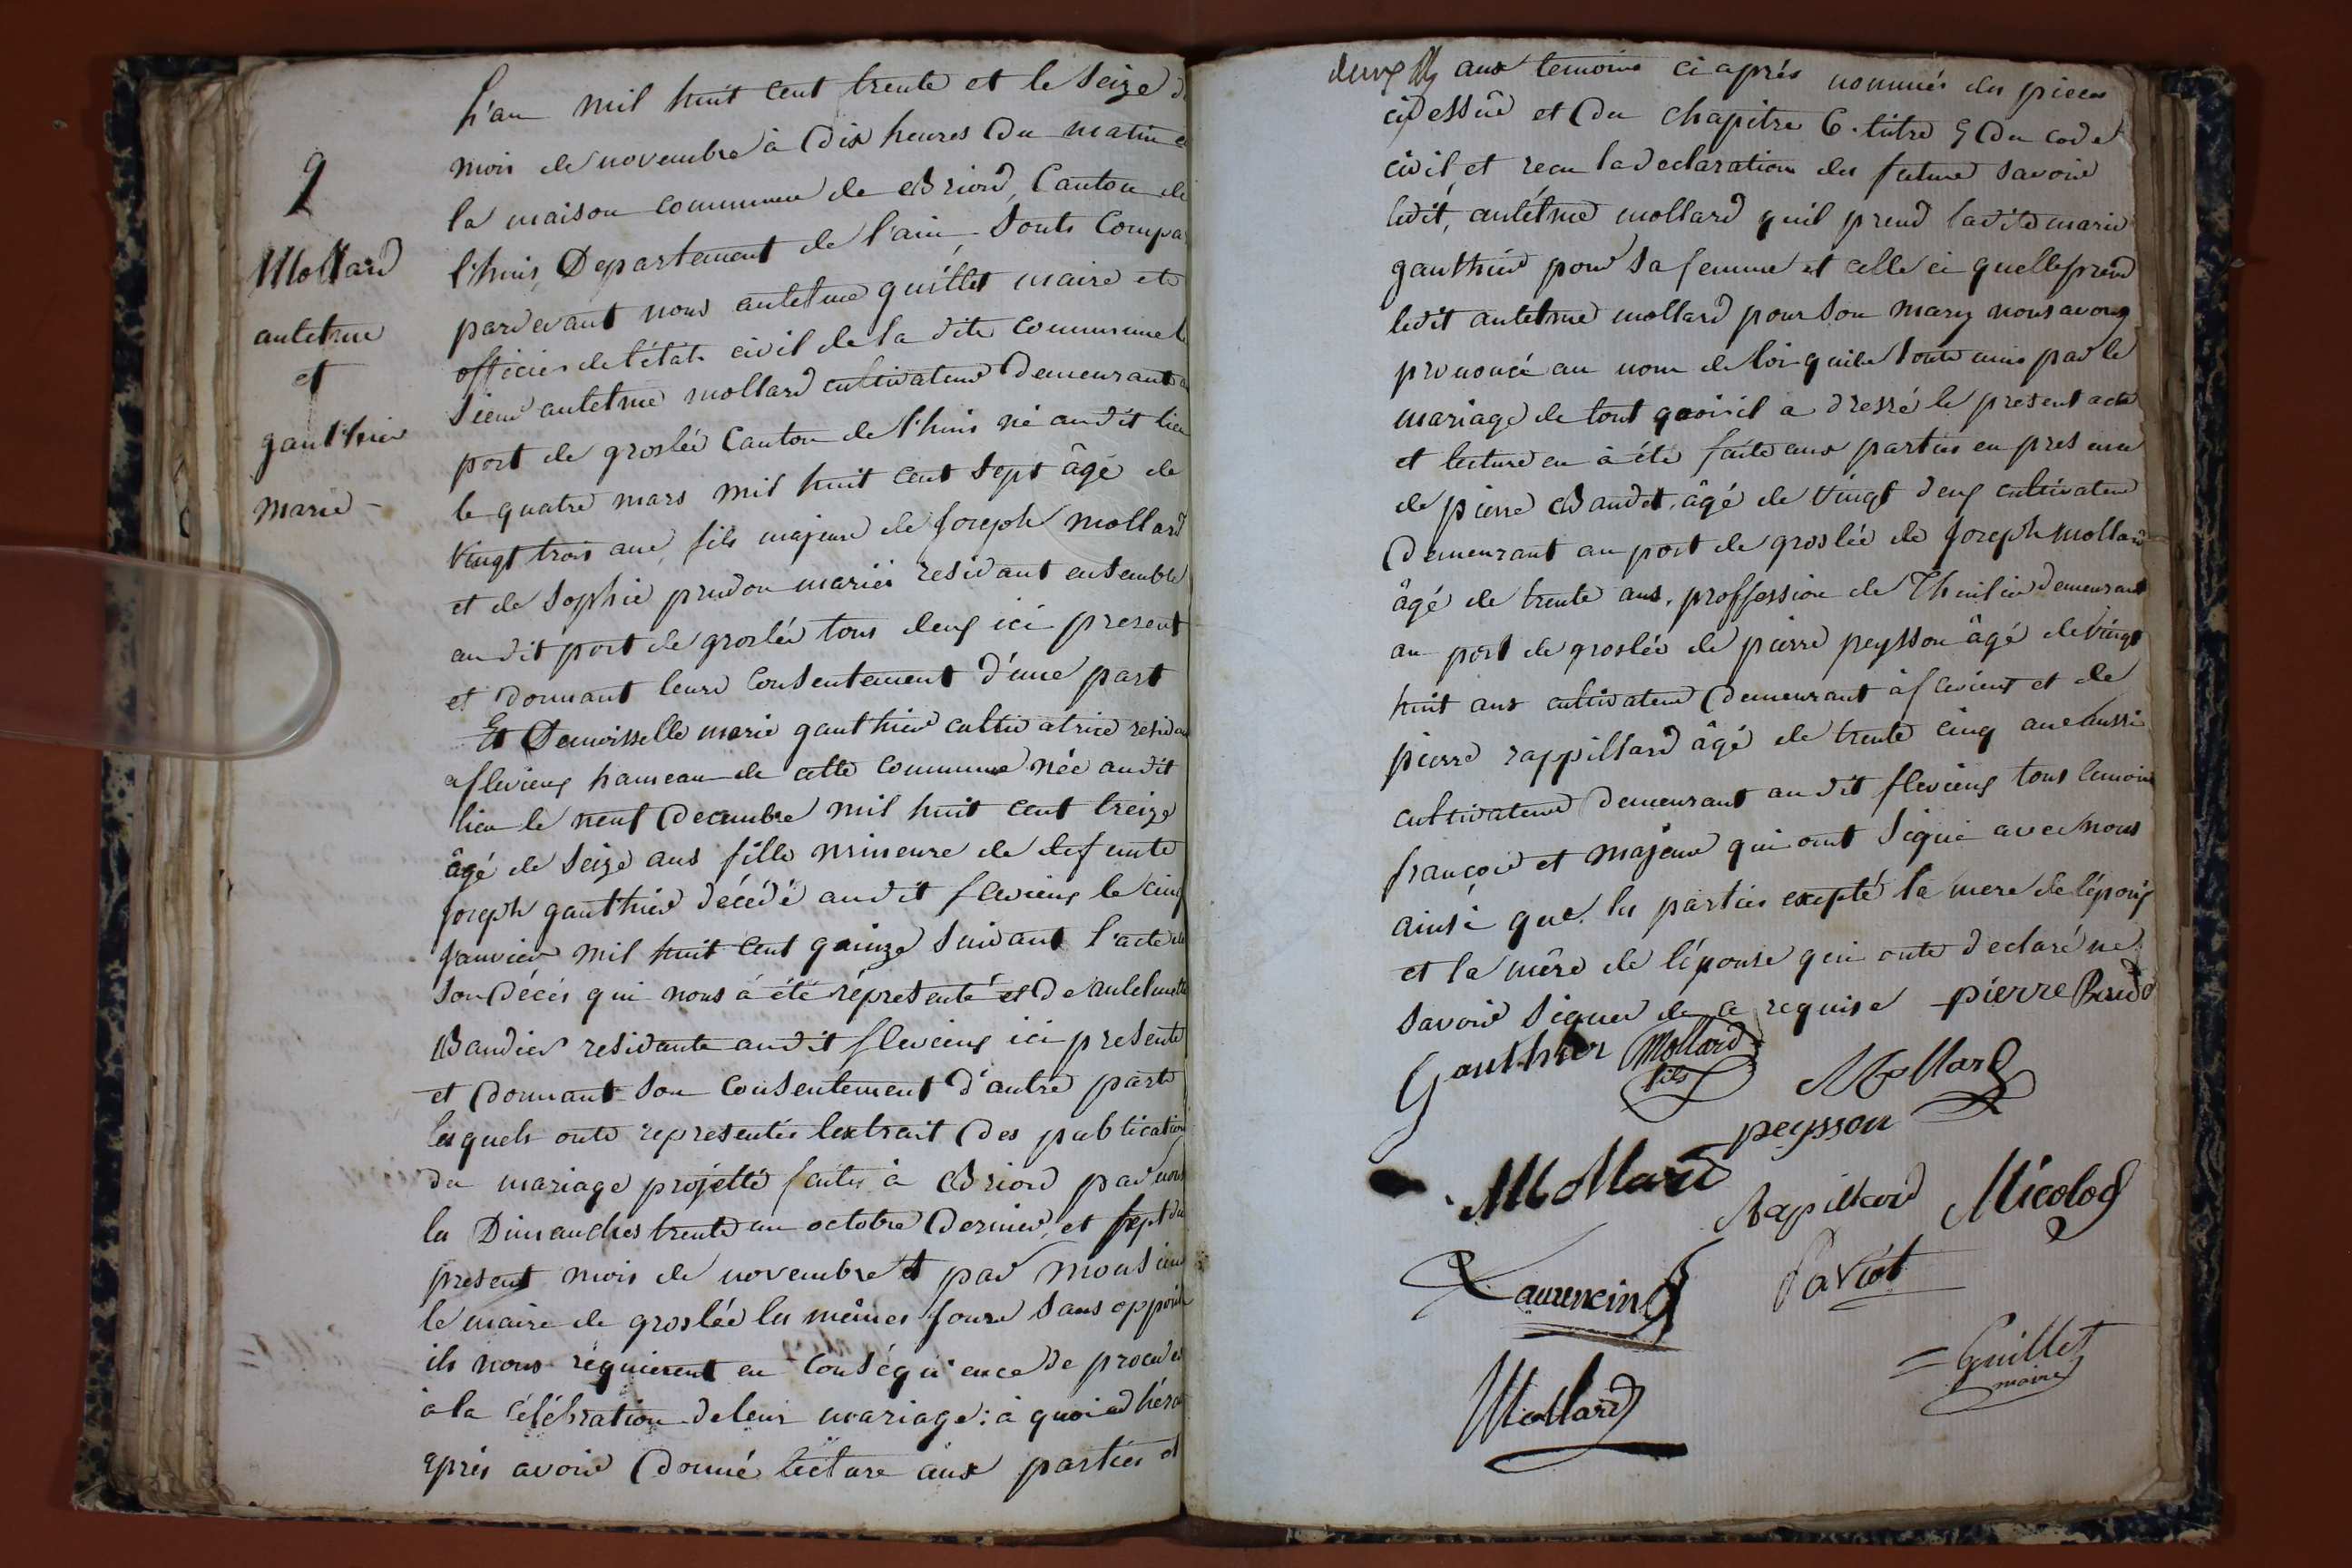 9
Mollard
antelme
et
gauthier
marie
L'an mil huit cent trente et le seize
mois de novembre à dix heures du matin
la maison commune de Briord, canton de
l'huis, Departement de l'ain, sonts compa
pardevant nous antelme guillet maire et
officier de l'état civil de la dite commune
sieur antelme mollard cultivateur demeurant
port de groslée canton de l'huis né audit lieu
le quatre mars mil huit cent sept âgé de
vingt trois ans, fils majeur de joseph mollard
et de sophie prudon mariés residant ensemble
audit port de groslée tous deux ici present
et donnant leurs consentement d'une part
Et Demoisselle marie gauthier cultivatrice resid
a flevieux hameau de cette commune née audit
lieu le neuf decembre mil huit cent treize
âgé de seize ans fille mineure de defunte
joseph gauthier décédé audit flevieux le cinq
janvier mil huit cent quinze suivant l'acte de
son décés qui nous à été répresenté et de antelmette
Baudier residante audit flevieux ici presente
et donnant son consentement d'autre parte
lesquels onte representés lextrait des publication
du mariage projetté faites à Briord par nous
les Dimanches trente un octobre dernier, et sept du
present mois de novembre et par monsieur
le maire de groslée les mêmes jours sans oppositi
ils nous réquierent en conséquence de proceder
à la célébration de leur mariage: à quoi adhéran
après avoir donné lecture aux parties et
aux temoins ci après nommés des pieces
cidessûs et du chapitre 6. titre 5 du code
civil, et recu la declaration des futurs savoir
ledit, antélme mollard quil prend ladite marie
gauthier pour sa femme et celle ci quelle prend
ledit antelme mollard pour son mary nous avons
prononcé au nom de loi quils sonte unis par le
mariage de tout quoi il a dressé le present acte
et lecture en à été faite aux parties en presence
de pierre Baudet, âgé de vingt deux cultivateur
demeurant au port de groslée de joseph mollard
âgé de trente ans, proffession de Thuilier demeurant
au port de groslée de pierre peysson âgé de vingt
huit ans cultivateur demeurant à flevieux et de
pierre rappillard âgé de trente cinq ans aussi
cultivateur demeurant audit flevieux tous temoins
françois et majeur qui ont signé avec nous
ainsi que les parties exepté la mere de lépoux
et la mère de lépouse qui onte declaré ne
savoir signer de ce requise pierre Baudet
Gauthier Mollard fils Mollard
peysson
Mollard Rapillard Micolod
Laurencin Paviot
Guillet
maire
Mollard